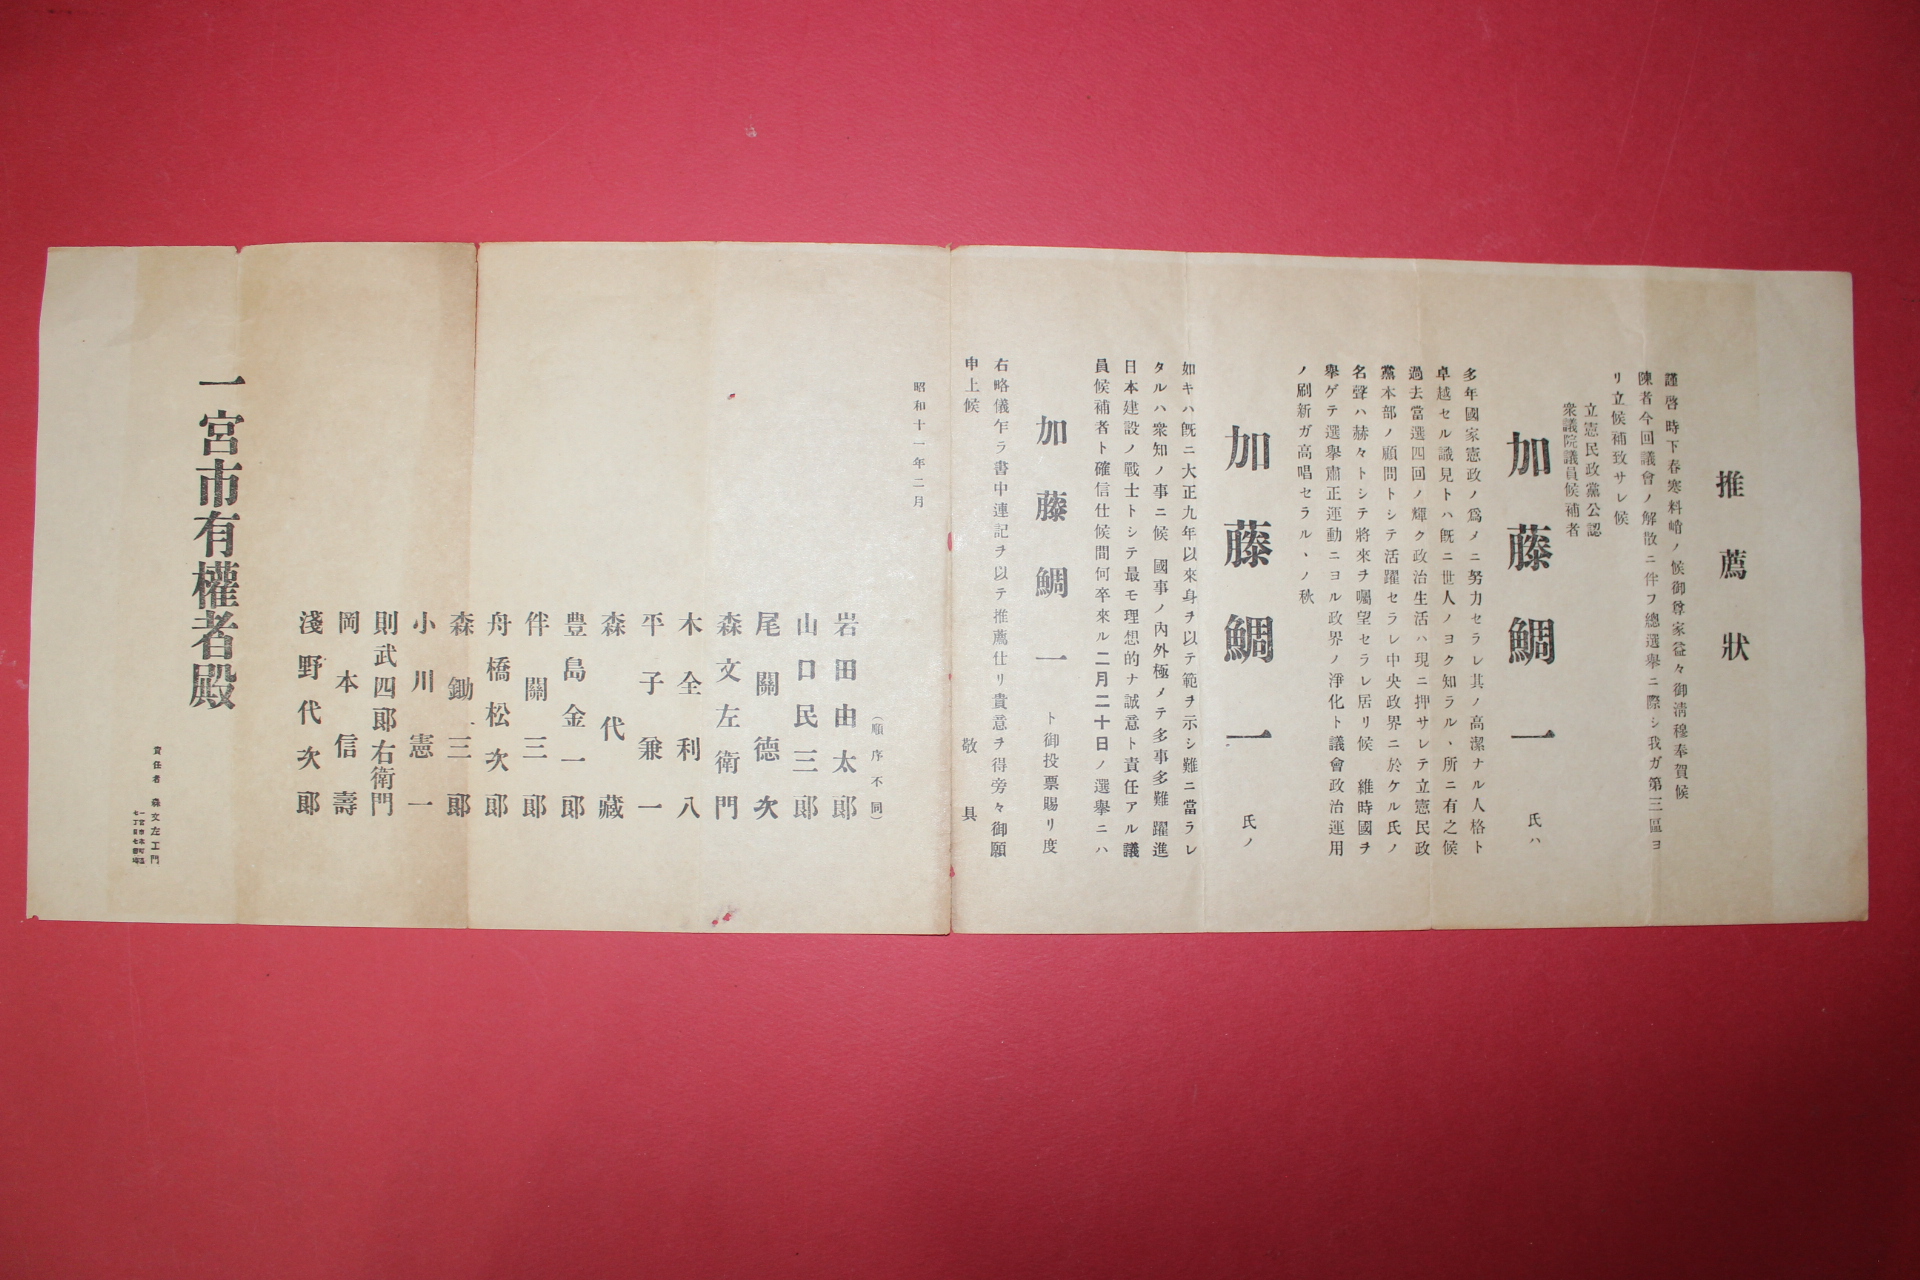 推薦狀
謹啓時下春寒料峭ノ候御尊家益々御淸穆奉賀候
陳者今回議會ノ解散ニ伴フ總選擧ニ際シ我ガ第三區ヨ
リ立候補致サレ候
立憲民政黨公認
衆議院議員候補者
加藤鯛一 氏ハ
多年國家憲政ノ爲メニ努力セラレ其ノ高潔ナル人格ト
卓越セル識見トハ旣ニ世人ノヨク知ラル、所ニ有之候
過去當選四回ノ輝ク政治生活ハ現ニ押サレテ立憲民政
黨本部ノ顧問トシテ活躍セラレ中央政界ニ於ケル氏ノ
名聲ハ赫々トシテ將來ヲ囑望セラレ居リ候 維時國ヲ
擧ゲテ選擧肅正運動ニヨル政界ノ淨化ト議會政治運用
ノ刷新ガ高唱セラル、ノ秋
加藤鯛一 氏ノ
如キハ旣ニ大正九年以來身ヲ以テ範ヲ示シ難ニ當ラレ
タルハ衆知ノ事ニ候 國事ノ內外極メテ多事多難 躍進
日本建設ノ戰士トシテ最モ理想的ナ誠意ト責任アル議
員候補者ト確信仕候間何卒來ル二月二十日ノ選擧ニハ
加藤鯛一 ト御投票賜リ度
右略儀乍ラ書中連記ヲ以テ推薦仕リ貴意ヲ得旁々御願
申上候 敬具
昭和十一年二月
(順序不同)
岩田由太郞
山口民三郞
尾關德次
森文左衛門
木全利八
平子兼一
森代藏
豊島金一郞
伴關三郞
舟橋松次郞
森鋤三郞
小川憲一
則武四郞右衛門
岡本信壽
淺野代次郞
一宮市有權者殿
責任者 森文左エ門
一宮市本町區
七丁目七番地